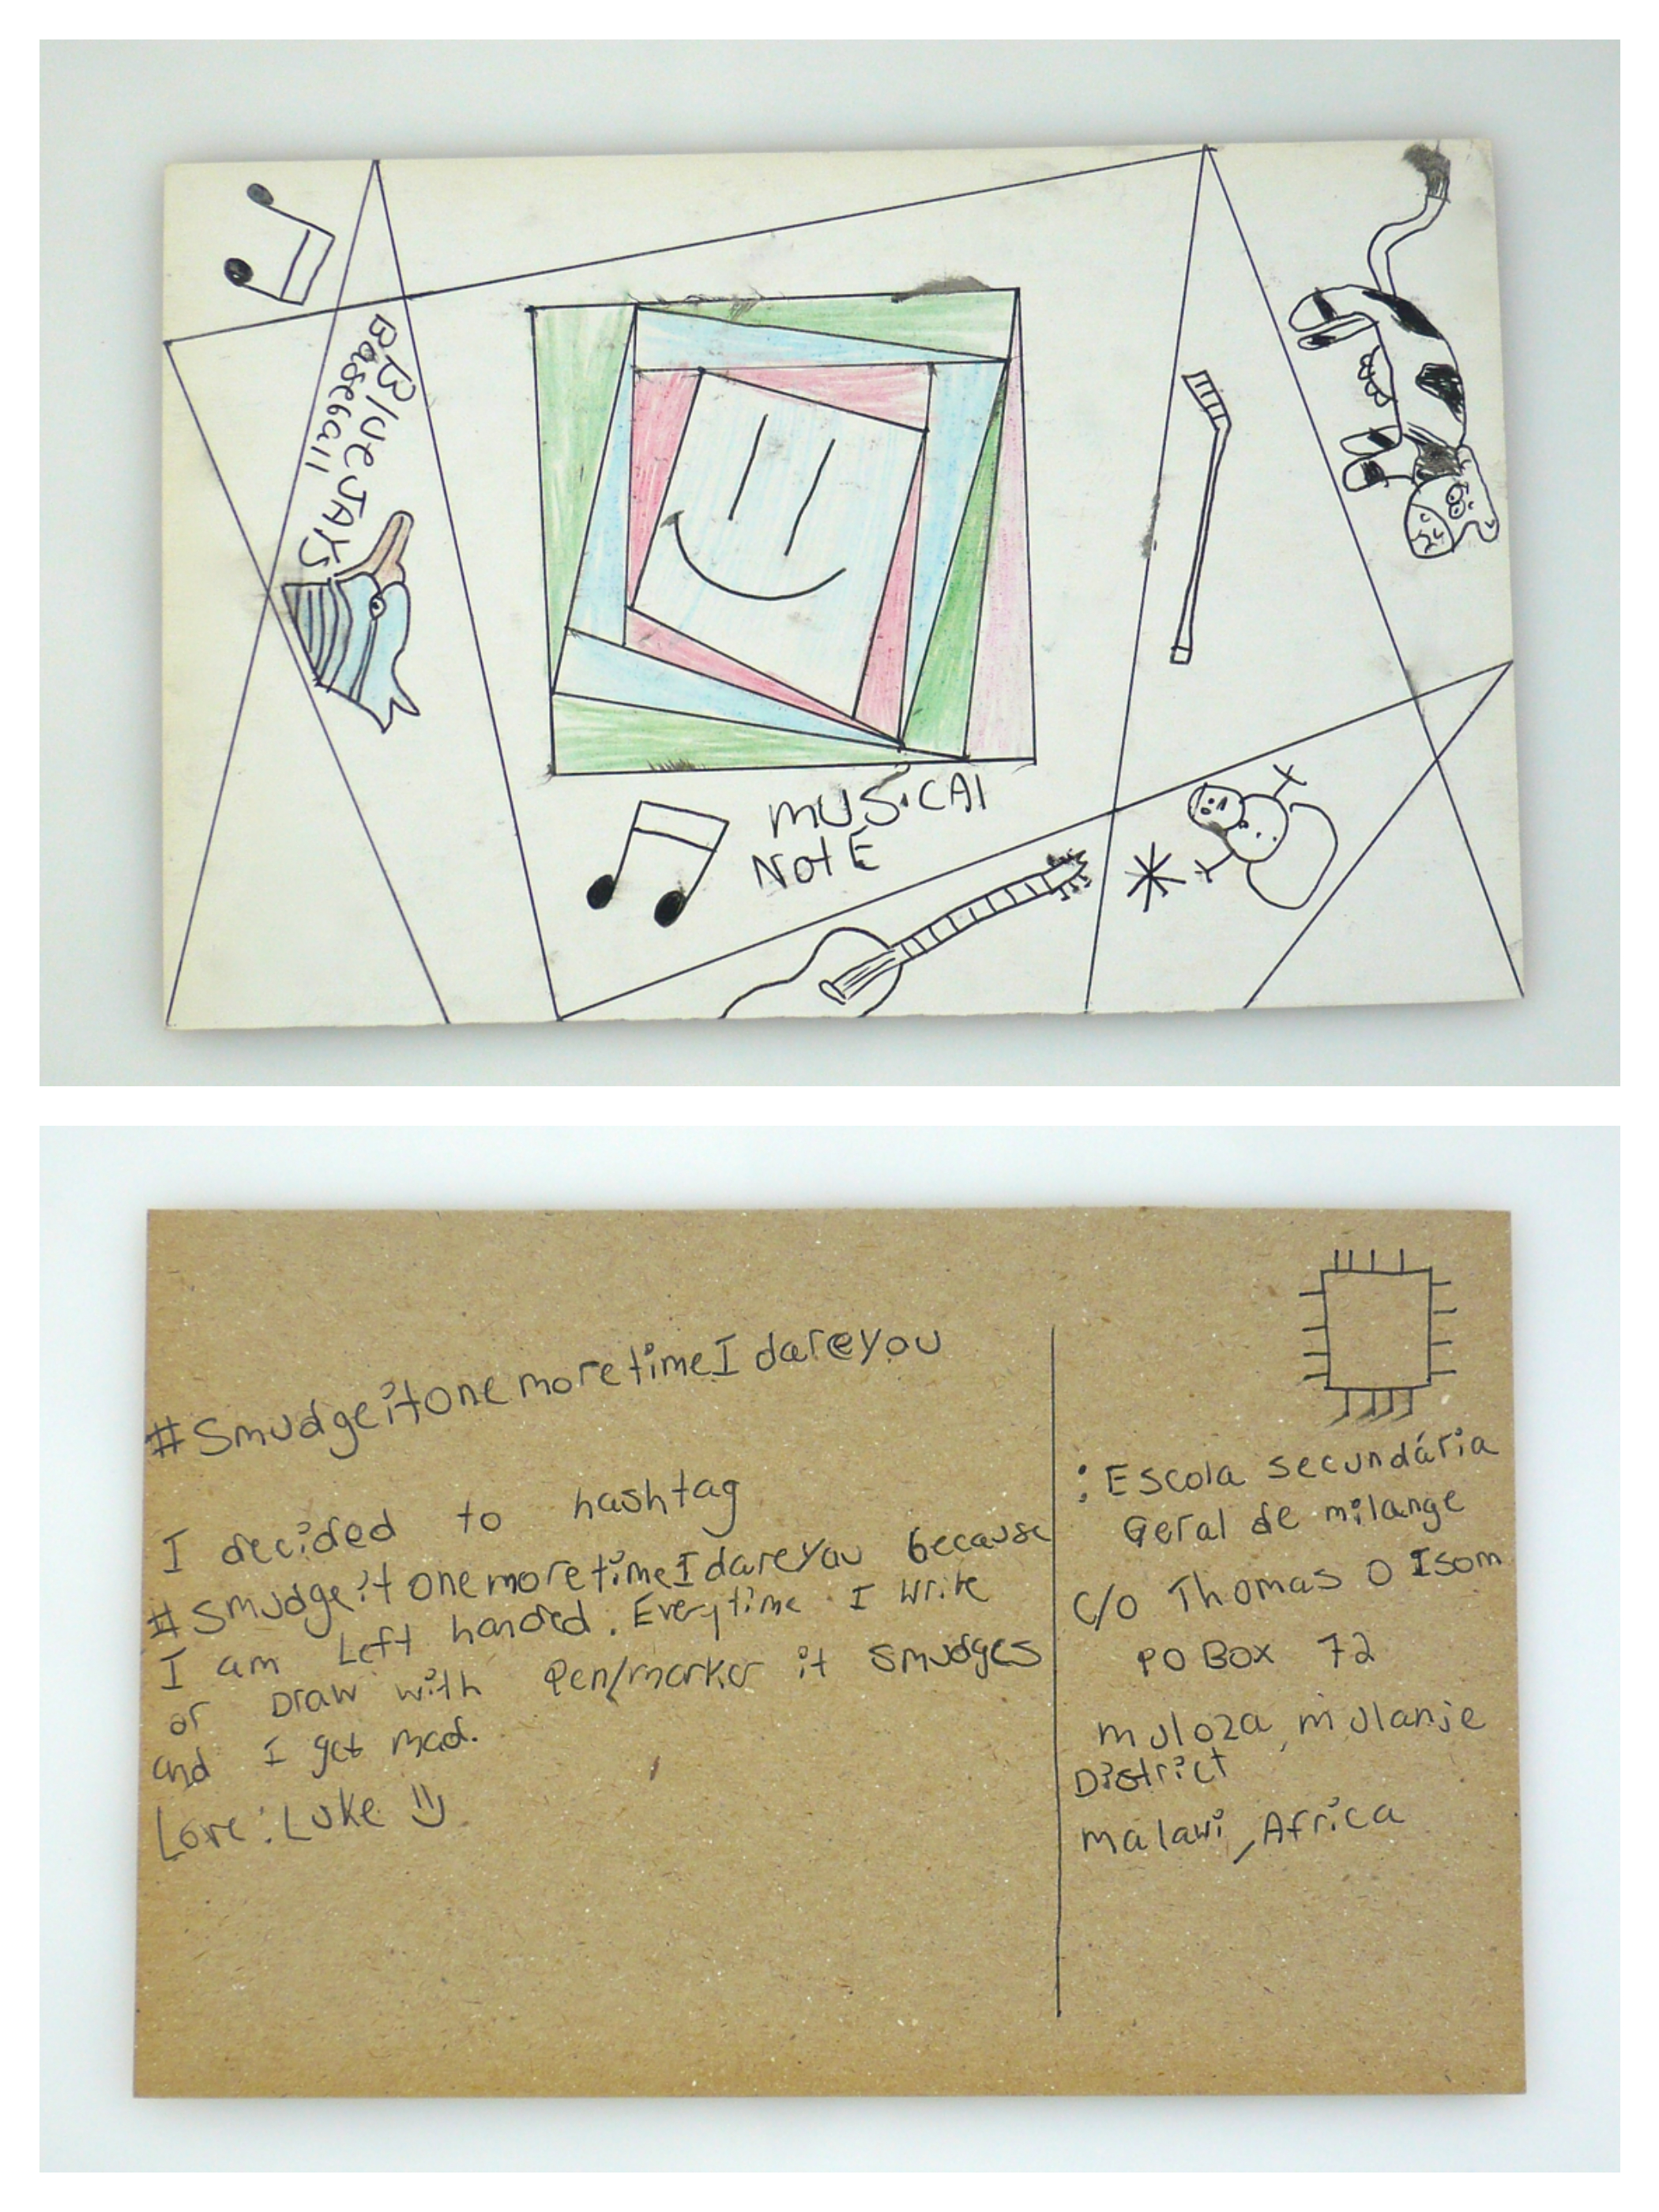 BBlue JAYS
Baseball
MUSiCAl
NotE
#Smudgeitonemoretime I dareyou
I decided to hashtag
#Smudgeitonemoretime I dareyou because
I am Left handed. Everytime I write
or Draw with Pen/marker it smudges
and I get mad.
Love: Luke
: Escola secundária
Geral de milange
C/O Thomas O Isom
PO Box 72
muloza, mulanje
District
malawi, Africa